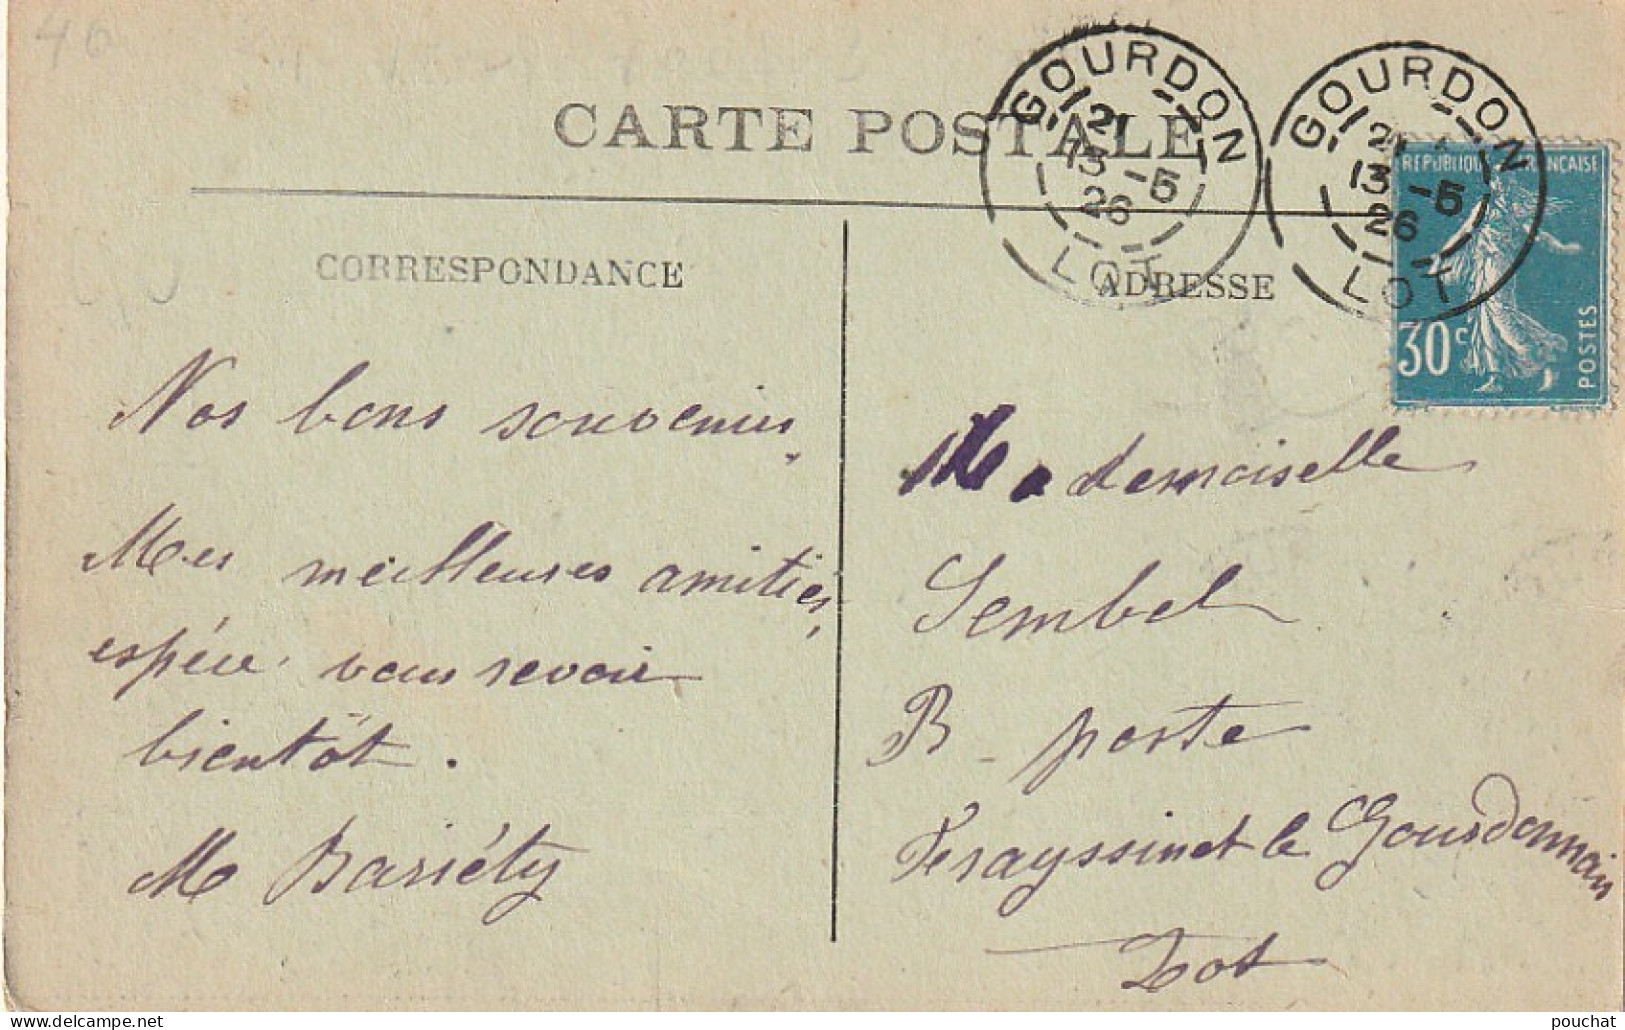 46
CARTE POSTALE
GOURDON
21
13 -5
26
LOT
GOURDON
21
13 -5
26
LOT
REPUBLIQUE FRANCAISE
30 c
POSTES
CORRESPONDANCE
Nos bons souvenirs.
Mes meilleures amitiés,
espère vous revoir
bientôt.
M Bariéty
ADRESSE
Mademoiselle
Sembel
B - poste
Ferayssinet le Gourdonnais
Lot
pouchat